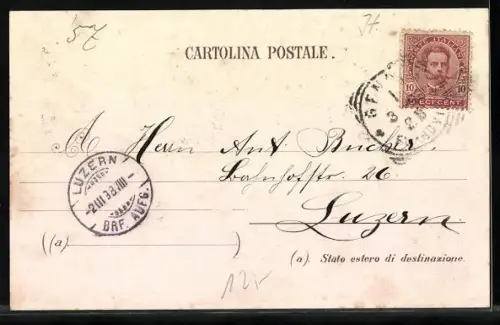 57
It.
CARTOLINA POSTALE.
POSTE ITALIANE
10 10
DIECI CENT
GENOVA
A Herrn Ant Bucher
Bahnhofstr. 26
Luzern
LUZERN
-2III98.VIII-
BRF. AUFG.
((a)
(a). Stato estero di destinazione.
12,-